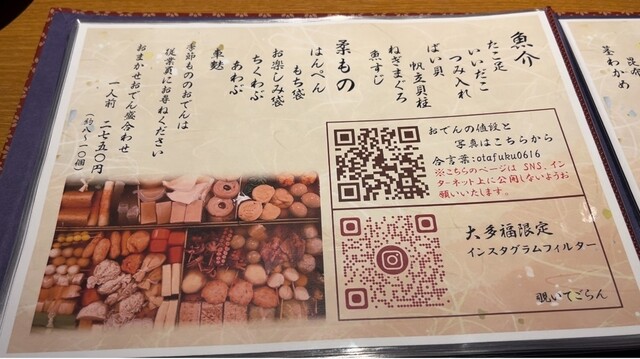 魚介
たこ足
いいだこ
つみ入れ
ばい貝
帆立貝柱
ねぎまぐろ
魚すじ
柔もの
はんぺん
もち袋
お楽しみ袋
ちくわぶ
あわぶ
車麩
季節もののおでんは
従業員にお尋ねください
おまかせおでん盛合わせ
一人前 二七五〇円
(約八~一〇個)
おでんの値段と
写真はこちらから
合言葉:otafuku0616
※こちらのページは SNS、イン
ターネット上に公開しないようお
願いいたします。
大多福限定
インスタグラムフィルター
覗いてごらん
昆布
茎わかめ